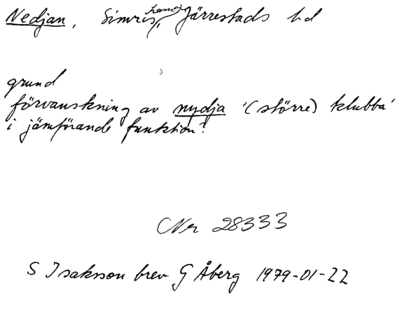 Nedjan, Simris hamn, Järrestads hd
grund
förvanskning av nydja '(större) klubba'
i jämförande funktion?
CNr 28333
S Isaksson brev G Åberg 1979-01-22